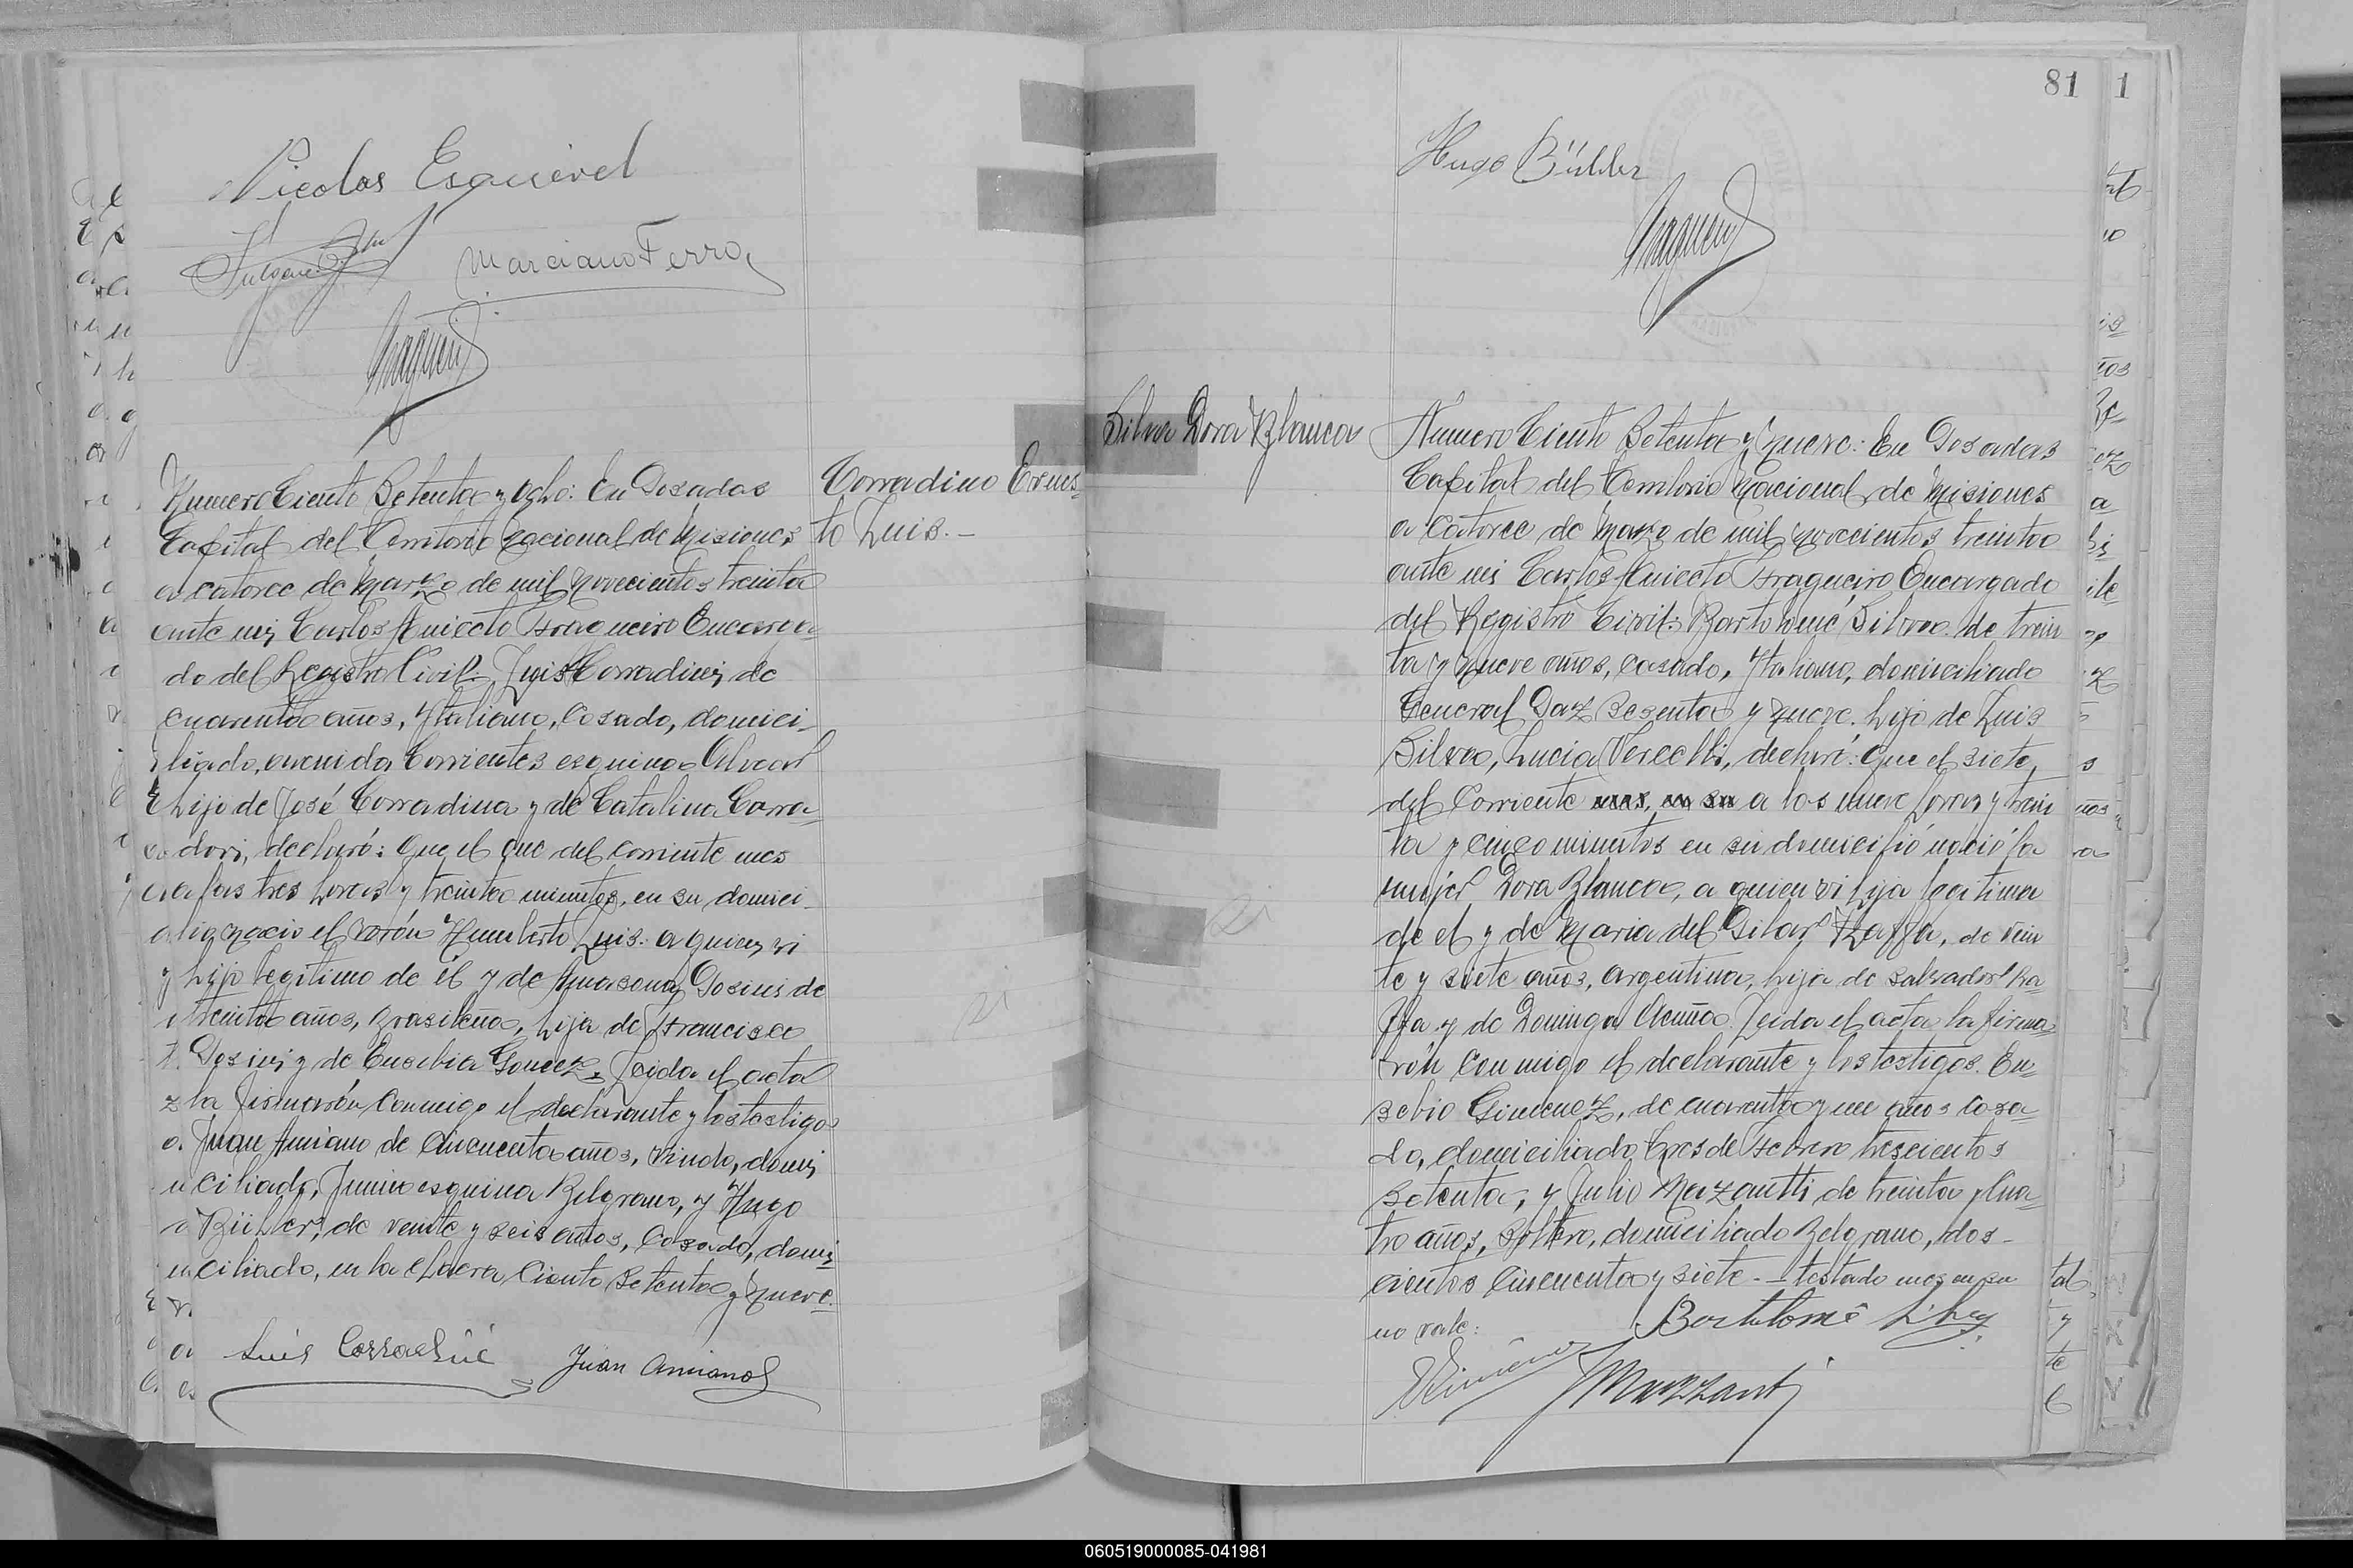 Nicolas Esquivel
Marciano Ferro
Corradino Ernes-
to Luis.-
Numero Ciento Setenta y Ocho: En Posadas
Capital del Territorio Nacional de Misiones
a catorce de Marzo de mil novecientos treinta
ante mi Carlos Aniecto Fragueiro Encarga-
do del Registro Civil. Luis Corradini de
cuarenta años, Ytaliano, Casado, domici-
liado, avenida Corrientes esquina Alvear
hijo de José Corradina y de Catalina Corra-
dori, declaró: Que el que del corriente mes
a las tres horas y treinta minutos, en su domici-
lio nacio el varón Humberto Luis: a quien vi
hijo legitimo de él y de Amasona Dosius de
treinta años, Brasileña, hija de Francisco
Dosivi y de Eusebia Gomez. Leida el acta
la firmarón conmigo el declarante y los testigos
Juan Amiano de Cincuenta años, Viudo, domi-
ciliado, Junin esquina Belgrano, y Hugo
Bühler, de veinte y seis años, Casado, domi-
ciliado, en la chacra Ciento Setenta y Nueve.
Luis Corradini Juan Amiano
81 1
Hugo Bühler
Silva Dora Blanca
Número Ciento Setenta y Nueve: En Posadas
Capital del Territorio Nacional de Misiones
a Catorce de Marzo de mil Novecientos treinta
ante mi Carlos Aniecto Fragueiro Encargado
del Registro Civil: Bartolomé Silva de trein
ta y Nueve años, casado, Ytaliano, domiciliado
General Paz Sesenta y Nueve. hijo de Luis
Silva, Lucia Vercelli, declaró: Que el siete
del Corriente mes, en su a las nueve horas y trein
ta y cinco minutos en su domicilió nació la
mujer Dora Blanca, a quien vi hija legitima
de el y de Maria del Pilar Raffa, de vein
te y siete años, argentina, hija de Salvador Ra-
ffa y de Dominga Acuña. Leida el acta la firma-
rón conmigo el declarante y los testigos. Eu-
sebio Gimenez, de cuarenta y un años casa-
do, domiciliado Tres de Febrero trescientos
Setenta, y Julio Mazantti de treinta y Cua-
tro años, Soltero, domiciliado Belgrano, dos-
cientos Cincuenta y siete.- testado mes en su
no vale:
Bartolomé Silva
JMazzanti
060519000085-041981